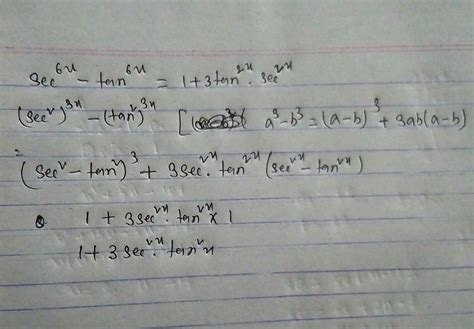 sec^6x - tan^6x = 1+3tan^2x . sec^2x
(sec^2)^3x - (tan^2)^3x [ a^3-b^3 = (a-b)^3 + 3ab(a-b)
= (sec^2 - tan^2)^3 + 3sec^2x . tan^2x (sec^2x - tan^2x)
1 + 3sec^2x . tan^2x x 1
1+3sec^2x . tan^2x